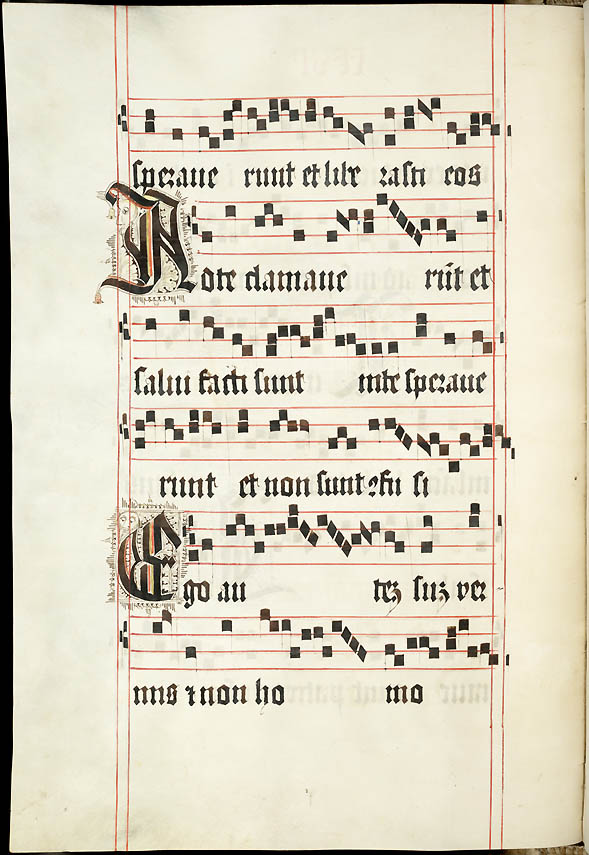 sperave runt et libe rasti eos
Ad te clamave rūt et
salvi facti sunt in te sperave
runt et non sunt ꝯfu si
Ego au teꝫ suꝫ ver
mis ⁊ non ho mo